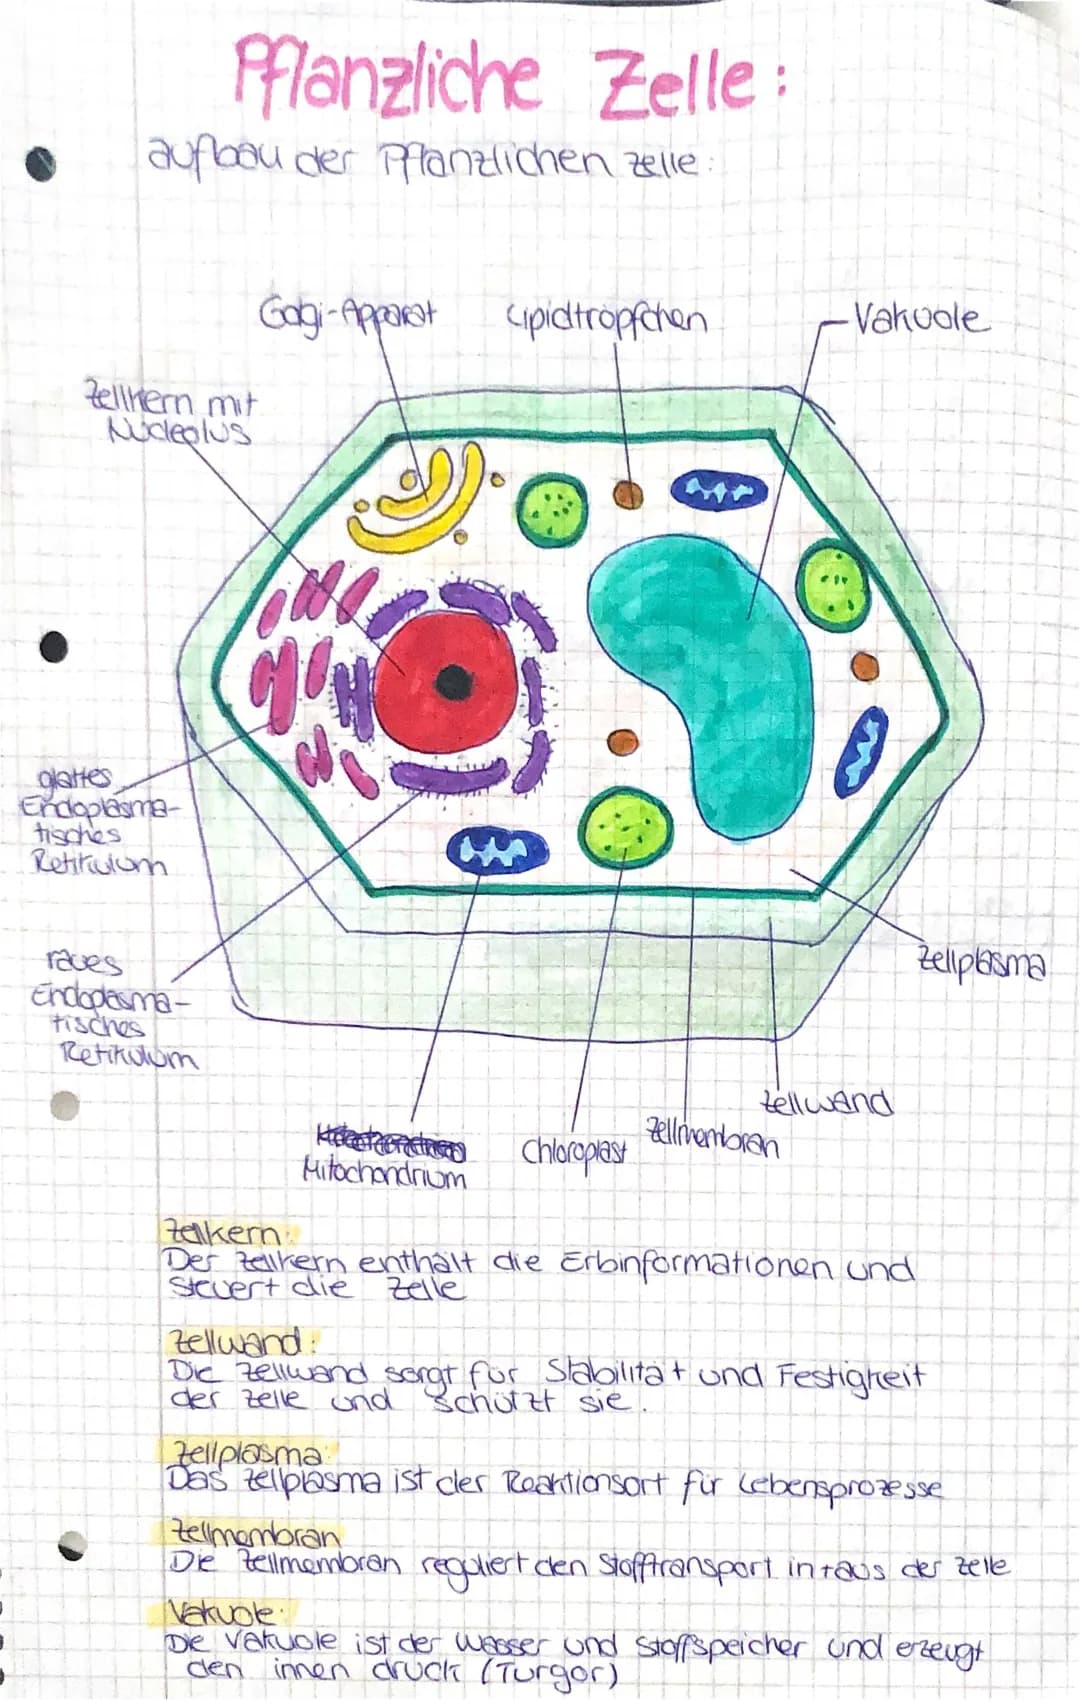 Pflanzliche Zelle:
aufbau der Pflanzlichen zelle:
Golgi-Apparat
Lipidtröpfchen
Vakuole
Zellkern mit
Nucleolus
glattes
Endoplasma-
tisches
Retikulum
raues
Endoplasma-
tisches
Retikulum
Zellplasma
Zellwand
Zellmembran
Chloroplast
Mitochondrium
Zellkern:
Der Zellkern enthält die Erbinformationen und
steuert die Zelle
Zellwand:
Die Zellwand sorgt für Stabilität und Festigkeit
der Zelle und schützt sie.
Zellplasma:
Das Zellplasma ist der Reaktionsort für Lebensprozesse
Zellmembran
Die Zellmembran reguliert den Stofftransport in+aus der Zelle
Vakuole:
Die Vakuole ist der Wasser und Stoffspeicher und erzeugt
den innen druck (Turgor)